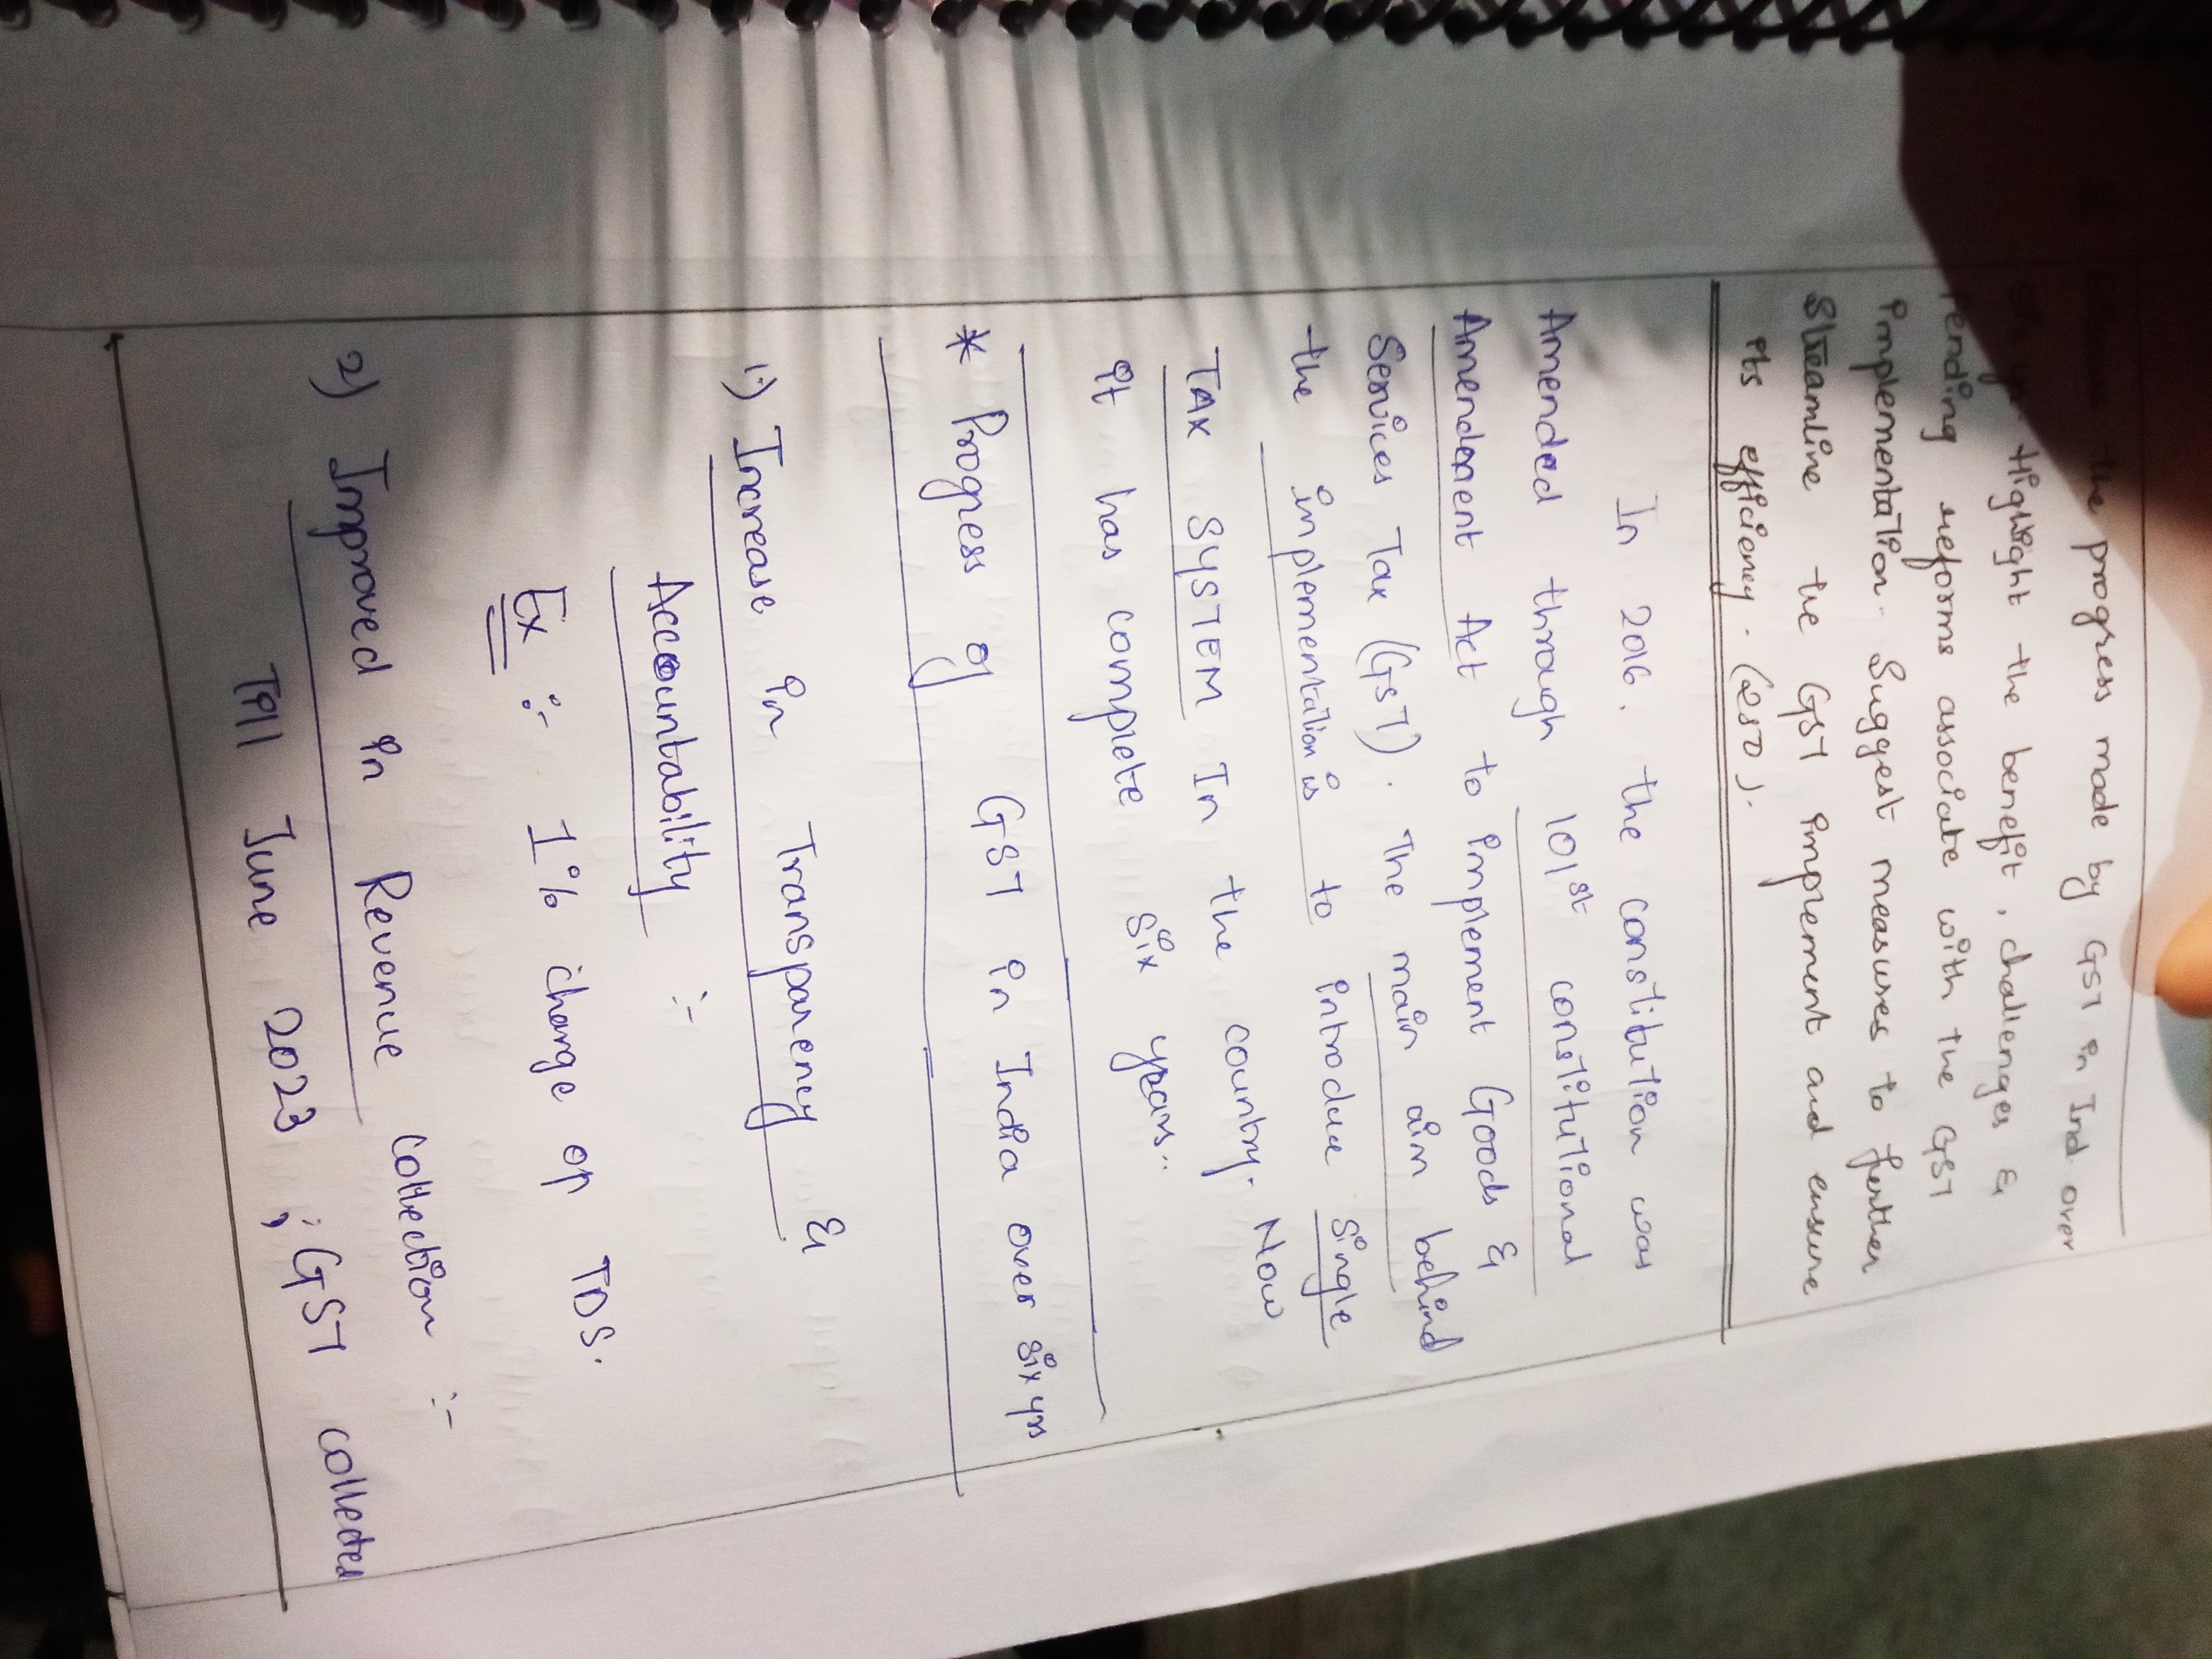 the progress made by GST in Ind over
Highlight the benefit, challenges &
Pending reforms associate with the GST
implementation. Suggest measures to further
Streamline the GST implement and ensure
its efficiency. (250).
In 2016, the constitution was
Amended through 101st constitutional
Amendment Act to implement Goods &
Services Tax (GST). The main aim behind
the implementation is to introdue single
TAX SYSTEM In the country. Now
it has complete six years..
* Progess of GST in India over six yrs
1) Increase in Transparency &
Accountability :-
Ex :- 1% change on TDS.
2) Improved in Revenue collection :-
Till June 2023 ; GST collected